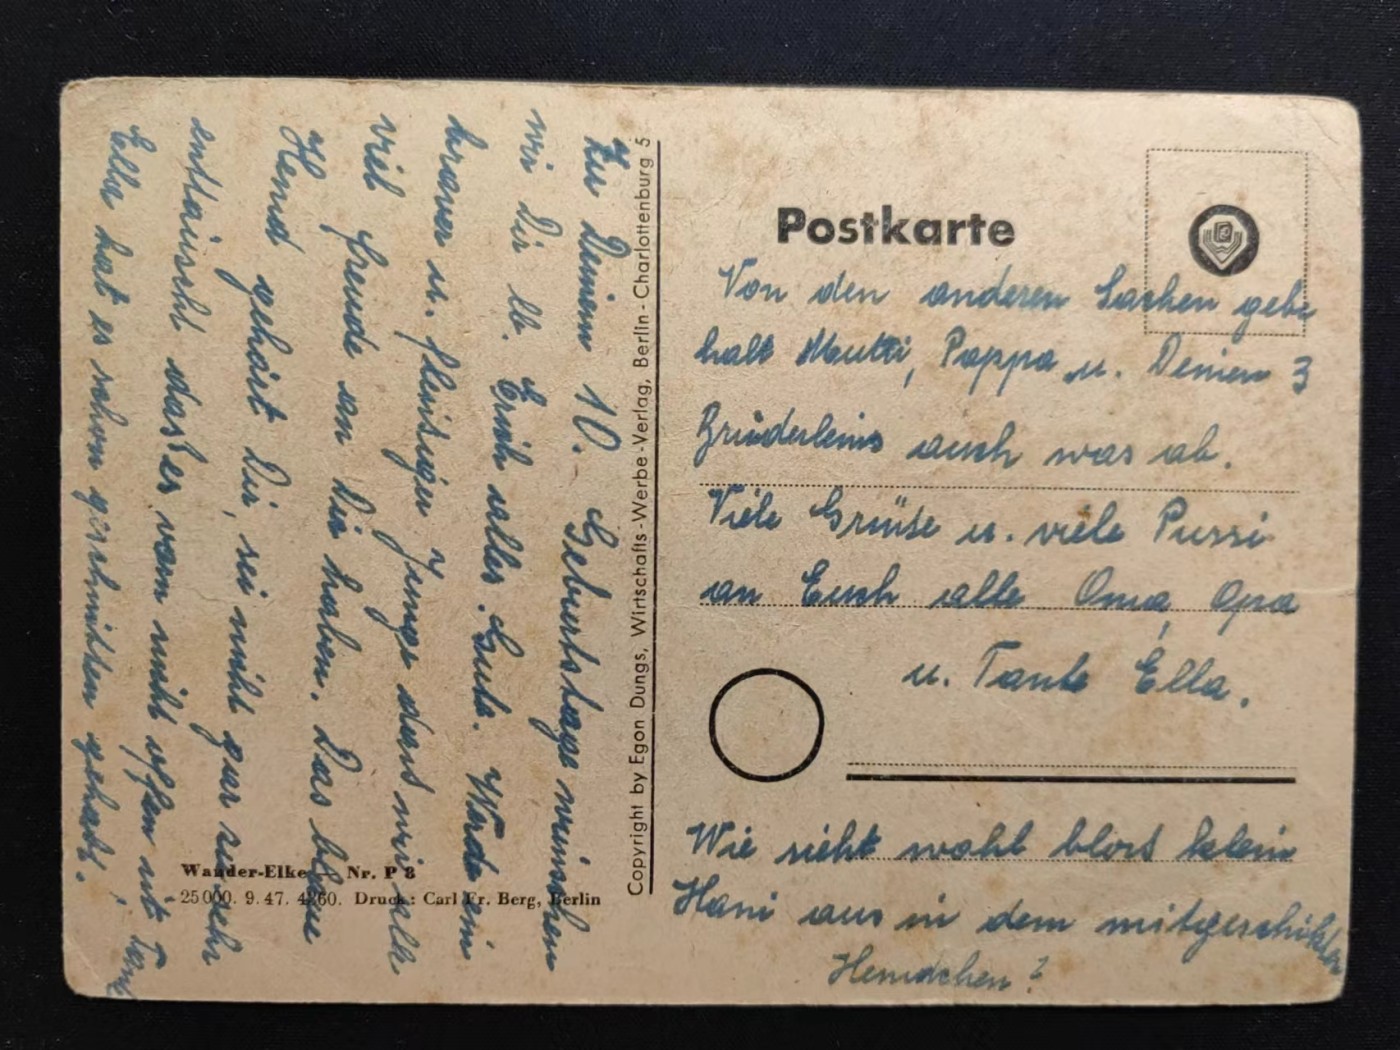 Zu Deinem 10. Geburtstage wünschen
wir Dir lb. Erich alles Gute. Werde ein
braver u. fleisiger Junge dass wir alle
viel freude an Dir haben. Das blaue
Hemd gehört Dir, sei nicht gar zu sehr
entäuscht dass es vorn nicht offen ist Tante
Ella hat es schon geschnitten gehabt!
Copyright by Egon Dungs, Wirtschafts-Werbe-Verlag, Berlin-Charlottenburg 5
Wander-Elke Nr. P 8
25000. 9. 47. 4260. Druck: Carl Fr. Berg, Berlin
Postkarte
Von den anderen Sachen gebe
halt Mutti, Pappa u. Deinen 3
Brüderleins auch was ab.
Viele Grüße u. viele Pussi
an Euch alle Oma, Opa
u. Tante Ella.
Wie sieht wohl blos klein
Hani aus in dem mitgeschikten
Hemdchen?